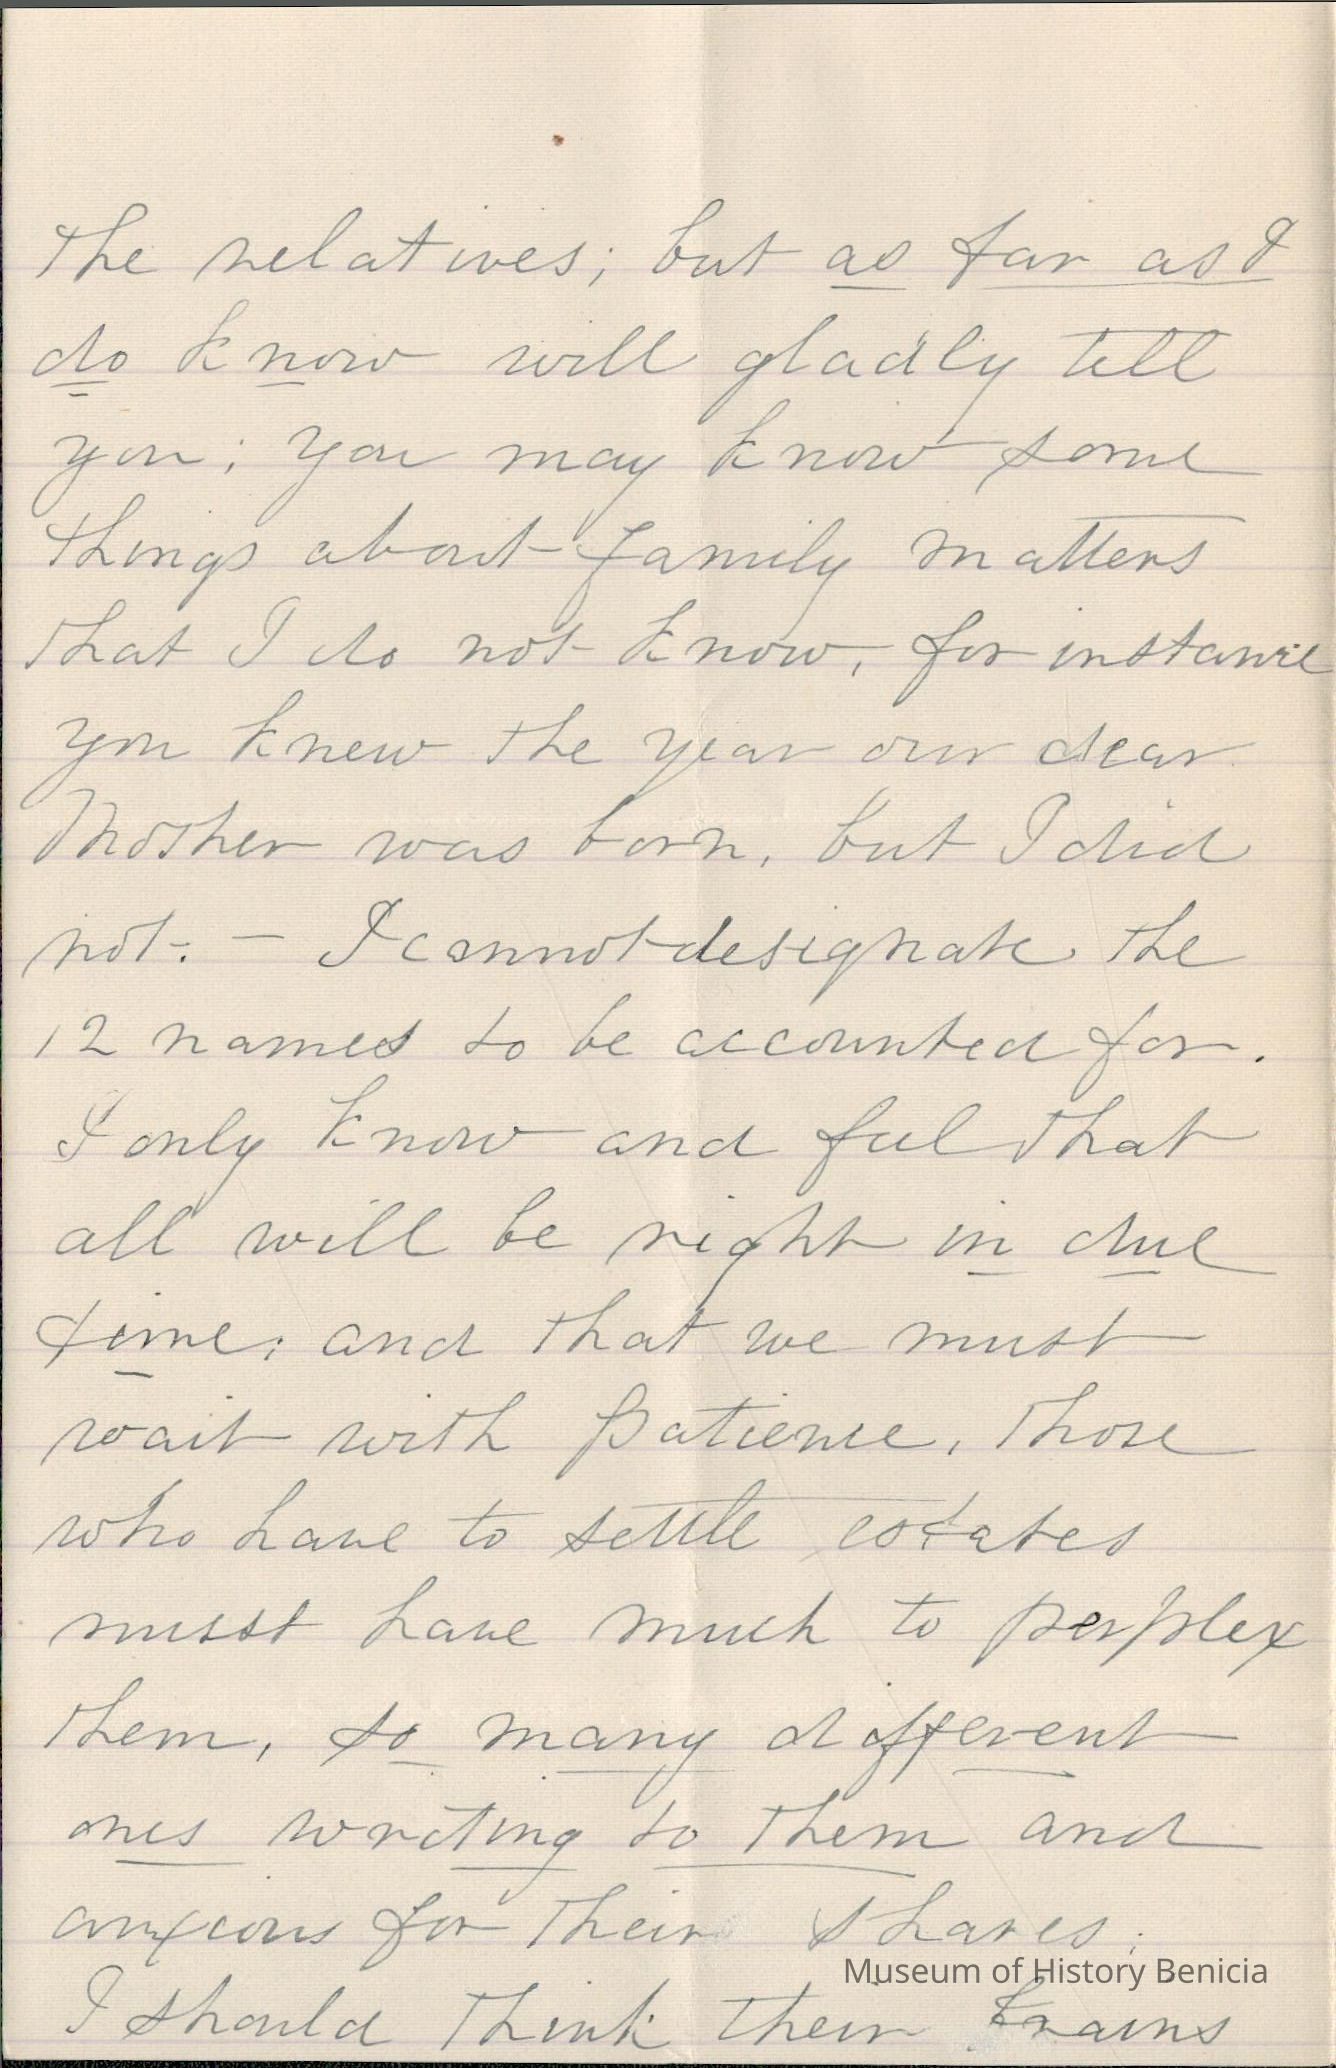 the relatives; but as far as I
do know will gladly tell
you; you may know some
things about family matters
that I do not know, for instance
you knew the year our dear
Mother was born, but I did
not. – I cannot designate the
12 names to be accounted for.
I only know and feel that
all will be right in due
time; and that we must
wait with Patience, those
who have to settle estates
musst have much to perplex
them, so many different
ones writing to them and
anxious for their shares.
Museum of History Benicia
I should think their brains